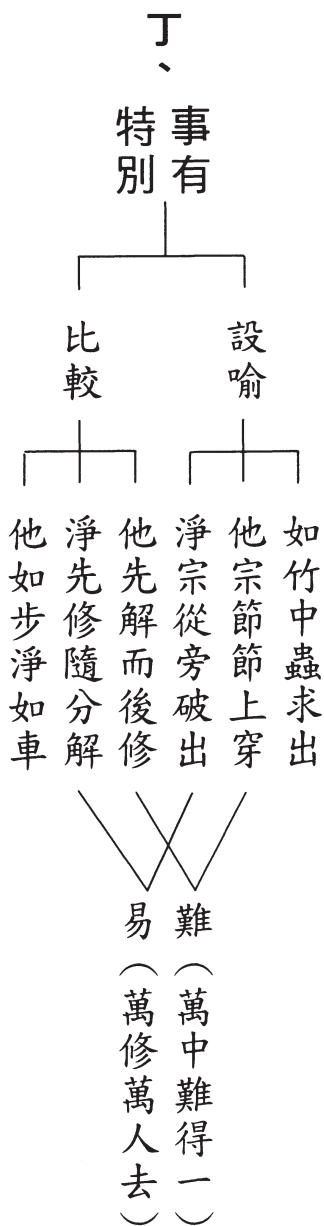 丁、
事有
特別
設喻
比較
如竹中蟲求出
他宗節節上穿
淨宗從旁破出
他先解而後修
淨先修隨分解
他如步淨如車
難（萬中難得一）
易（萬修萬人去）